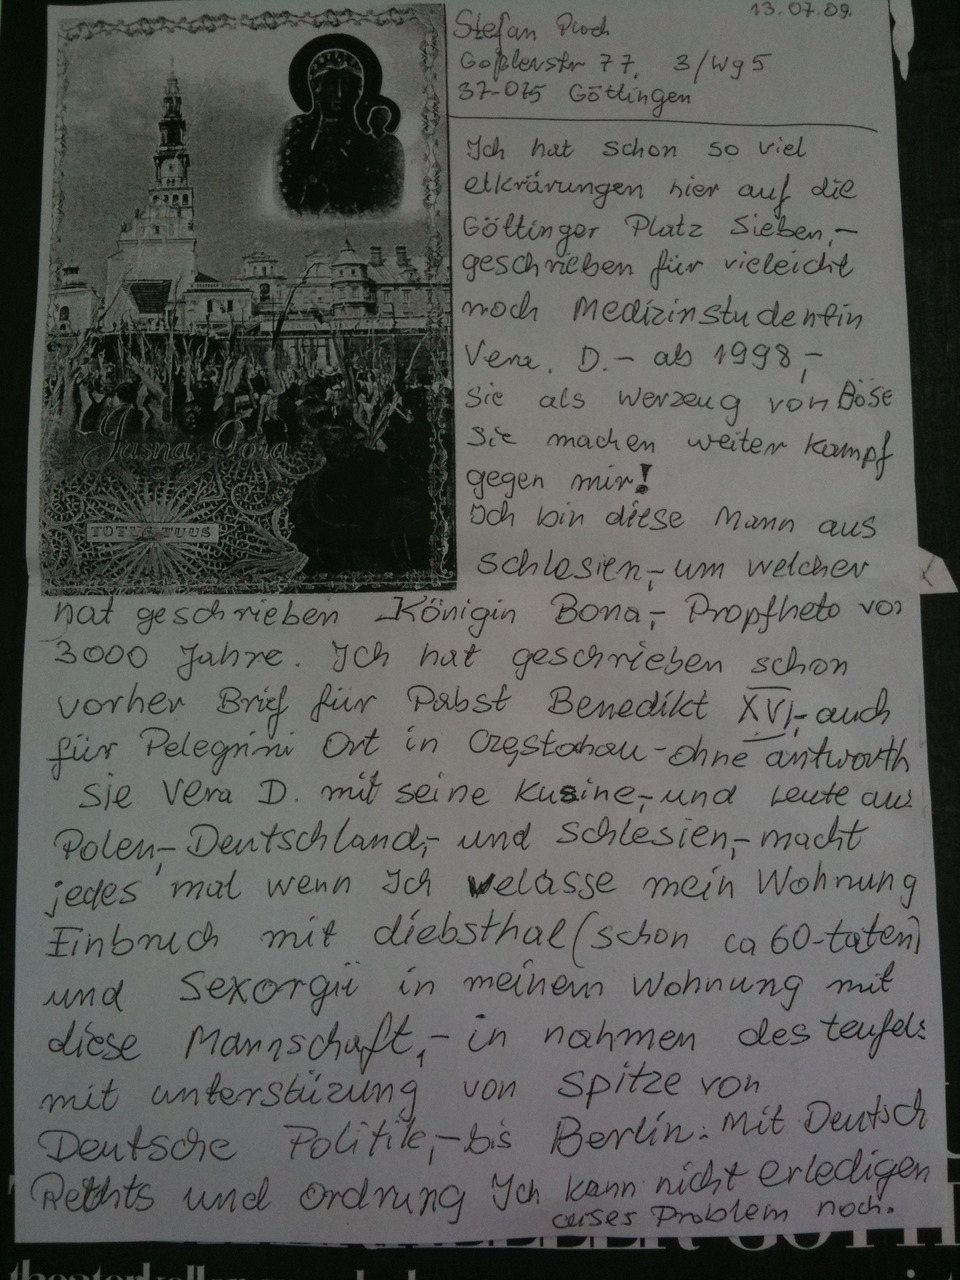 13.07.09.
Stefan Ploch
Goßlerstr 77, 3/Wg5
37-075 Göttingen
Ich hat schon so viel
elkrärungen hier auf die
Göttinger Platz Sieben,-
geschrieben für vieleicht
noch Medizinstudentin
Vera. D.- ab 1998,-
Sie als Werzeug von Böse
Sie machen weiter Kampf
gegen mir!
Ich bin diese Mann aus
Schlesien,- um welcher
Jasna Góra
TOTUS TUUS
hat geschrieben Königin Bona,- Propfheto vor
3000 Jahre. Ich hat geschrieben schon
vorher Brief für Pabst Benedikt XVI,- auch
für Pelegrini Ort in Częstohau - ohne antworth
Sie Vera D. mit seine Kusine,- und Leute aus
Polen,- Deutschland,- und Schlesien,- macht
jedes mal wenn Ich velasse mein Wohnung
Einbruch mit diebsthal (schon ca 60-taten)
und Sexorgii in meinem Wohnung mit
diese Mannschaft,- in nahmen des teufels
mit unterstüzung von Spitze von
Deutsche Politik,- bis Berlin. Mit Deutsch
Rethts und Ordnung Ich kann nicht erledigen
dises Problem noch.